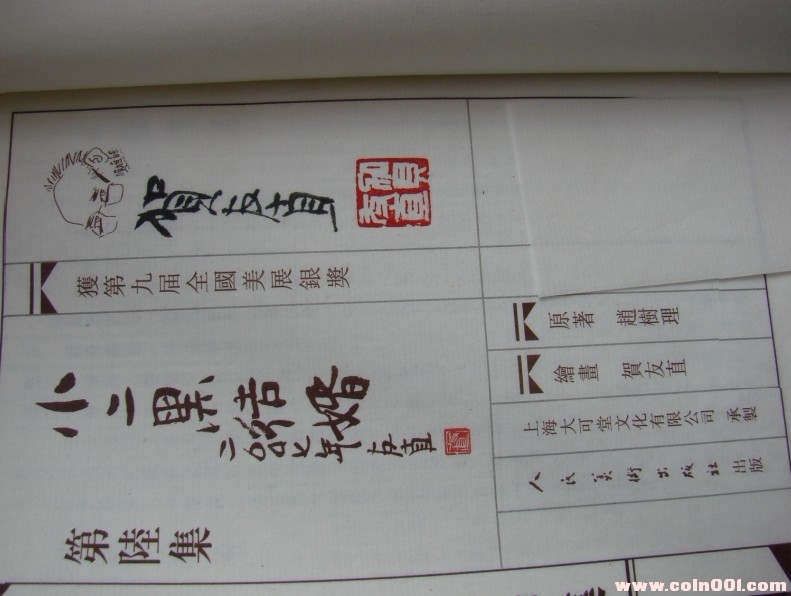 賀友直
賀友直
獲第九届全國美展銀獎
原著 趙樹理
繪畫 賀友直
小二黑結婚
二〇〇七年 友直
上海大可堂文化有限公司 承製
人民美術出版社 出版
第陸集
www.coin001.com